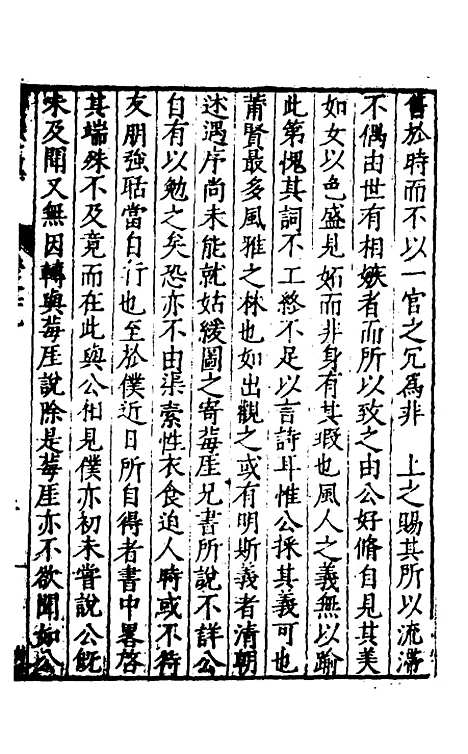 舊於時而不以一官之冗為非　上之賜其所以流滯
不偶由世有相嫉者而所以致之由公好脩自見其美
如女以色盛見妬而非身有其瑕也風人之義無以踰
此第愧其詞不工終不足以言詩耳惟公採其義可也
莆賢最多風雅之林也如出觀之或有明斯義者清朝
述遇序尚未能就姑緩圖之寄莓厓兄書所說不詳公
自有以勉之矣恐亦不由渠素性衣食迫人時或不待
友朋強聒當自行也至於僕近日所自得者書中畧啓
其端殊不及竟而在此與公相見僕亦初未嘗說公旣
未及聞又無因轉與莓厓說除是莓厓亦不欲聞如公